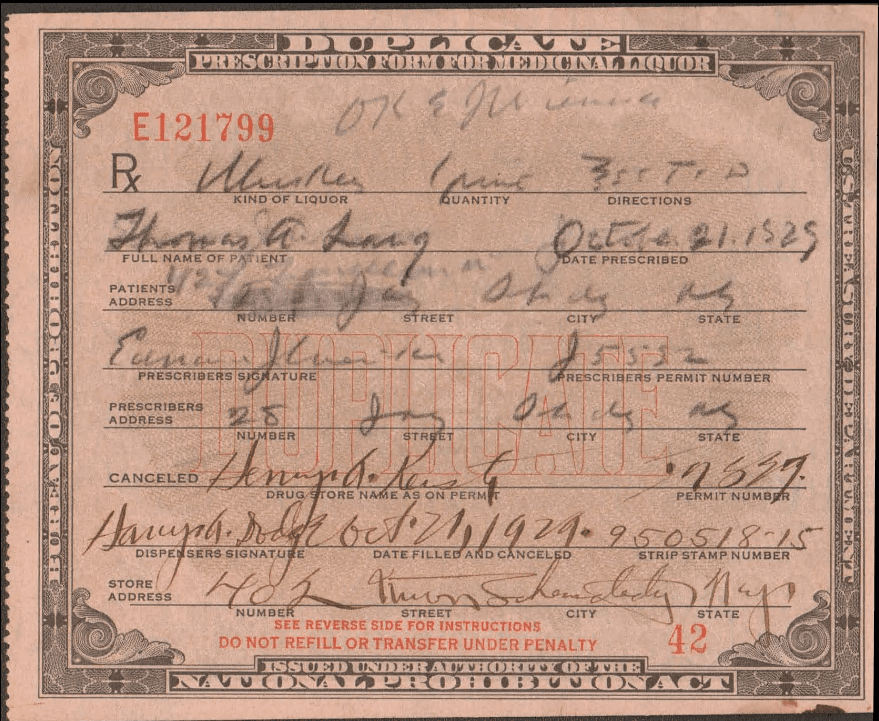 DUPLICATE
PRESCRIPTION FORM FOR MEDICINAL LIQUOR
OK
E121799
Rx Whiskey 1 pint
KIND OF LIQUOR QUANTITY DIRECTIONS
Thomas A. Lang October 21. 1929
FULL NAME OF PATIENT DATE PRESCRIBED
PATIENTS ADDRESS Jay NY
NUMBER STREET CITY STATE
J5552
PRESCRIBERS SIGNATURE PRESCRIBERS PERMIT NUMBER
PRESCRIBERS ADDRESS 28 Jay NY
NUMBER STREET CITY STATE
DUPLICATE
CANCELED Henry A.
DRUG STORE NAME AS ON PERMIT PERMIT NUMBER
Harry A. Oct. 21, 1929. 950518-15
DISPENSERS SIGNATURE DATE FILLED AND CANCELED STRIP STAMP NUMBER
STORE ADDRESS 402 Union Schenectady
NUMBER STREET CITY STATE
SEE REVERSE SIDE FOR INSTRUCTIONS
DO NOT REFILL OR TRANSFER UNDER PENALTY 42
ISSUED UNDER AUTHORITY OF THE
NATIONAL PROHIBITION ACT